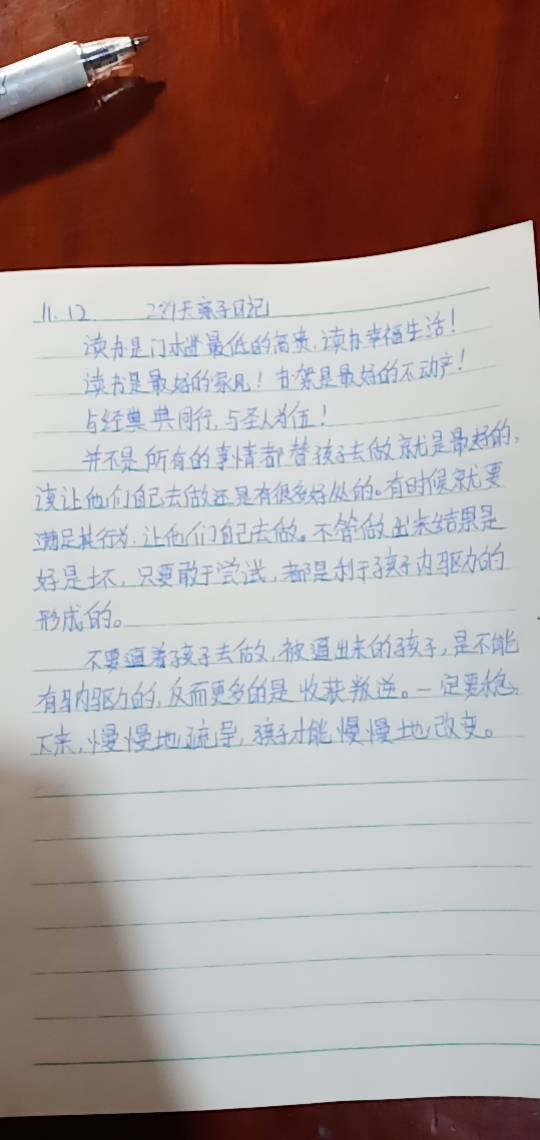 11.12. 279天亲子日记
读书是门槛最低的高贵，读书幸福生活！
读书是最好的家风！书架是最好的不动产！
与经典共同行，与圣人为伍！
并不是所有的事情都替孩子去做就是最好的，
该让他们自己去做还是有很多好处的。有时候就要
满足其行为，让他们自己去做。不管做出来结果是
好是坏，只要敢于尝试，都是利于孩子内驱力的
形成的。
不要逼着孩子去做，被逼出来的孩子，是不能
有内驱力的，反而更多的是收获叛逆。一定要稳
下来，慢慢地疏导，孩子才能慢慢地改变。